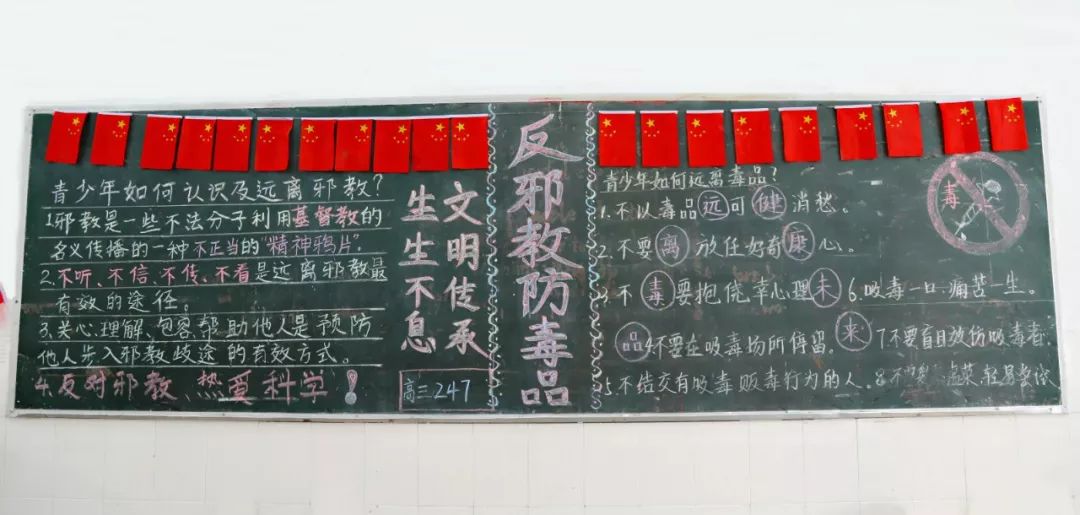 青少年如何认识及远离邪教?
1.邪教是一些不法分子利用基督教的
名义传播的一种不正当的"精神鸦片".
2.不听、不信、不传、不看是远离邪教最
有效的途径。
3.关心、理解、包容、帮助他人是预防
他人步入邪教歧途的有效方式。
4.反对邪教、热爱科学!
文明传承
生生不息
高三247
反邪教防毒品
青少年如何远离毒品?
毒
1.不以毒品远可健消愁。
2.不要离放任好奇康心。
3.不毒要抱侥幸心理未
6.吸毒一口痛苦一生。
品4.不要在吸毒场所停留。来
7.不要盲目效仿吸毒者.
5.不结交有吸毒贩毒行为的人。
8.不要